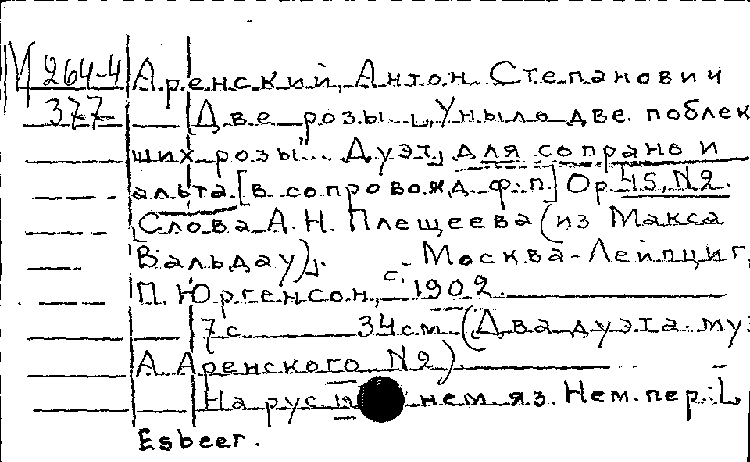 М 264-4 Аренский, Антон Степанович
377 Две розы. „Уныло две поблек
ших розы"... Дуэт, для сопрано и
альта. [в сопровожд. ф.п.] Op. 45, №2.
[Слова А. Н. Плещеева (из Макса
Вальдау)]. - Москва-Лейпциг,
П. Юргенсон, с. 1902.
7 с. 34 см. (Два дуэта муз.
А. Аренского №2)
На рус. нем. яз. Нем. пер.: L.
Esbeer.